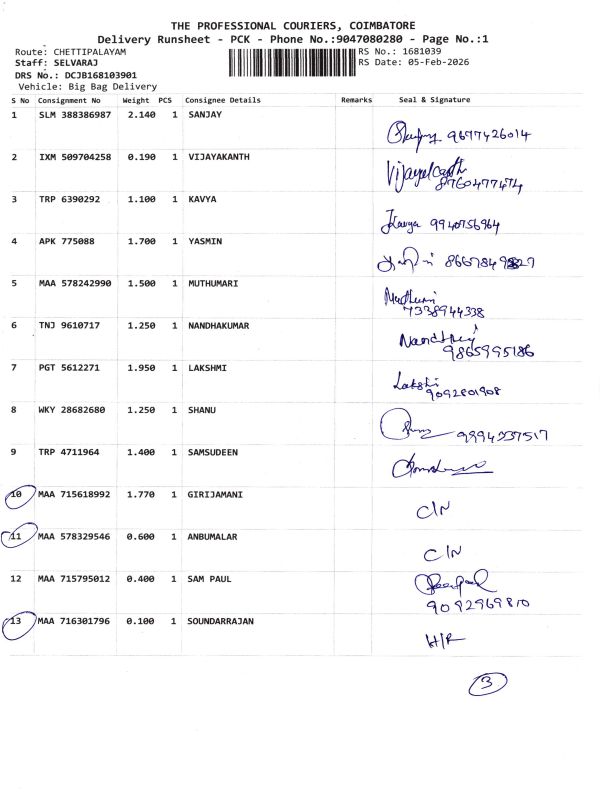 THE PROFESSIONAL COURIERS, COIMBATORE
Delivery Runsheet - PCK - Phone No.:9047080280 - Page No.:1
Route: CHETTIPALAYAM RS No.: 1681039
Staff: SELVARAJ RS Date: 05-Feb-2026
DRS No.: DCJB168103901
Vehicle: Big Bag Delivery
S No Consignment No Weight PCS Consignee Details Remarks Seal & Signature
1 SLM 388386987 2.140 1 SANJAY
9677426014
2 IXM 509704258 0.190 1 VIJAYAKANTH
Vijayakanth
8760477474
3 TRP 6390292 1.100 1 KAVYA
Kavya 9940756964
4 APK 775088 1.700 1 YASMIN
5 MAA 578242990 1.500 1 MUTHUMARI
7338944338
6 TNJ 9610717 1.250 1 NANDHAKUMAR
9865995186
7 PGT 5612271 1.950 1 LAKSHMI
9092801908
8 WKY 28682680 1.250 1 SHANU
9994237517
9 TRP 4711964 1.400 1 SAMSUDEEN
10 MAA 715618992 1.770 1 GIRIJAMANI
C/N
11 MAA 578329546 0.600 1 ANBUMALAR
C/N
12 MAA 715795012 0.400 1 SAM PAUL
9092969810
13 MAA 716301796 0.100 1 SOUNDARRAJAN
H/R
3